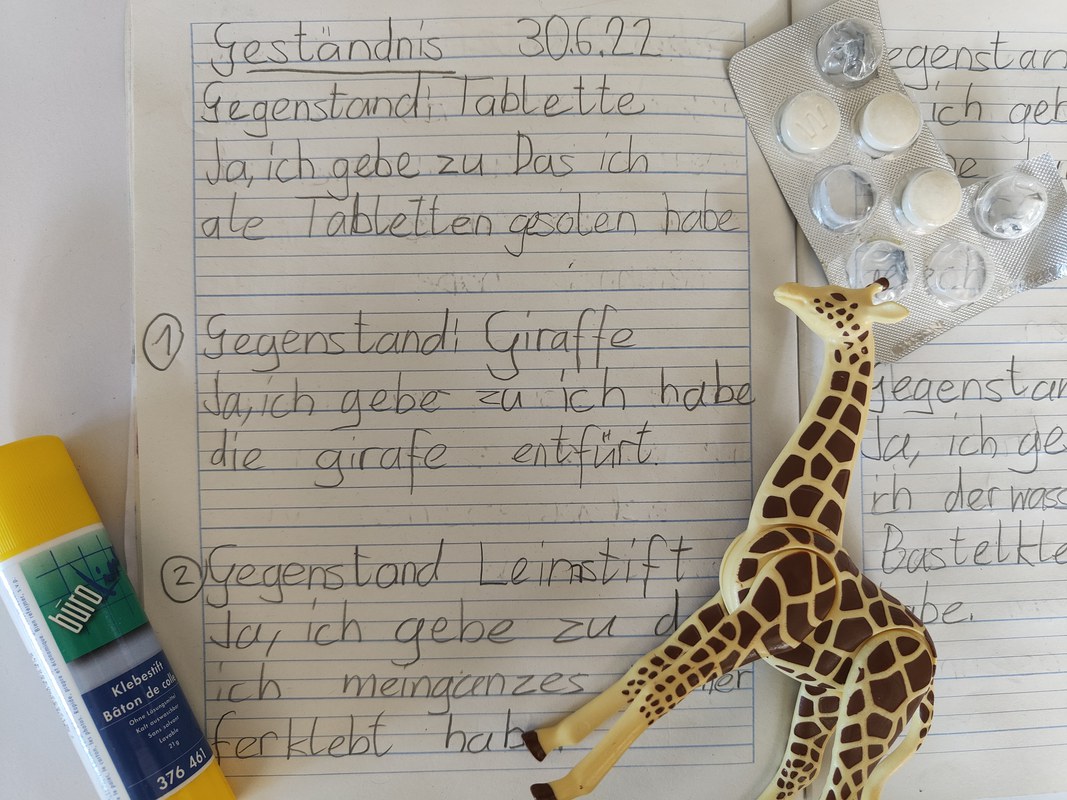 Geständnis 30.6.22
Gegenstand: Tablette
Ja, ich gebe zu Das ich
ale Tabletten gesolen habe
① Gegenstand: Giraffe
Ja, ich gebe zu ich habe
die girafe entfürt.
② Gegenstand Leimstift
Ja, ich gebe zu d
ich meinganzes
ferklebt hab
egenstan
ich geb
Gegenstan
Ja, ich ge
ich der wass
Bastelkle
abe.
büro
Klebestift
Bâton de colle
Ohne Lösungsmittel
Kalt auswaschbar
Sans solvant
Lavable
21 g
376 461